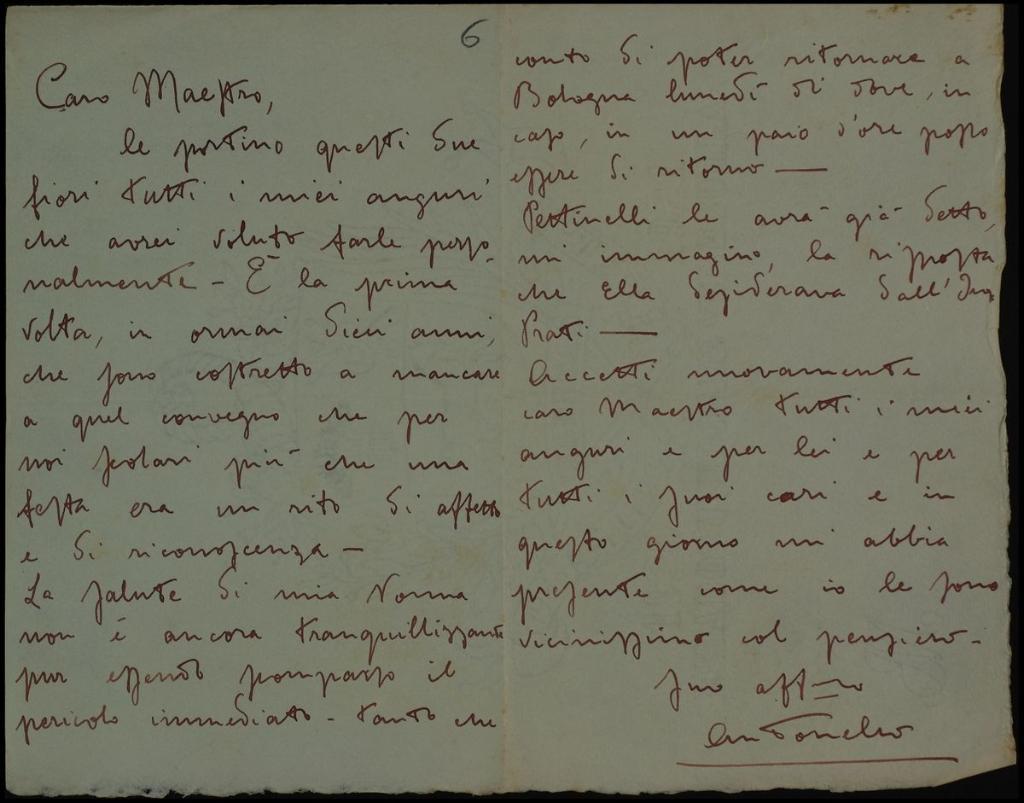 6
Caro Maestro,
le portino questi due
fiori tutti i miei auguri
che avrei voluto farle perso
nalmente - È la prima
volta, in ormai dieci anni,
che sono costretto a mancare
a quel convegno che per
noi scolari più che una
festa era un rito di affetto
e di riconoscenza -
La salute di mia Nonna
non è ancora tranquillizzante
pur essendo scomparso il
pericolo immediato - tanto che
conto di poter ritornare a
Bologna lunedì di dove, in
caso, in un paio d'ore posso
essere di ritorno —
Pettinelli le avrà già detto,
mi immagino, la risposta
che Ella desiderava dall'Ing
Prati —
Accetti nuovamente
caro Maestro tutti i miei
auguri e per lei e per
tutti i suoi cari e in
questo giorno mi abbia
presente come io le sono
vicinissimo col pensiero -
Suo aff=mo